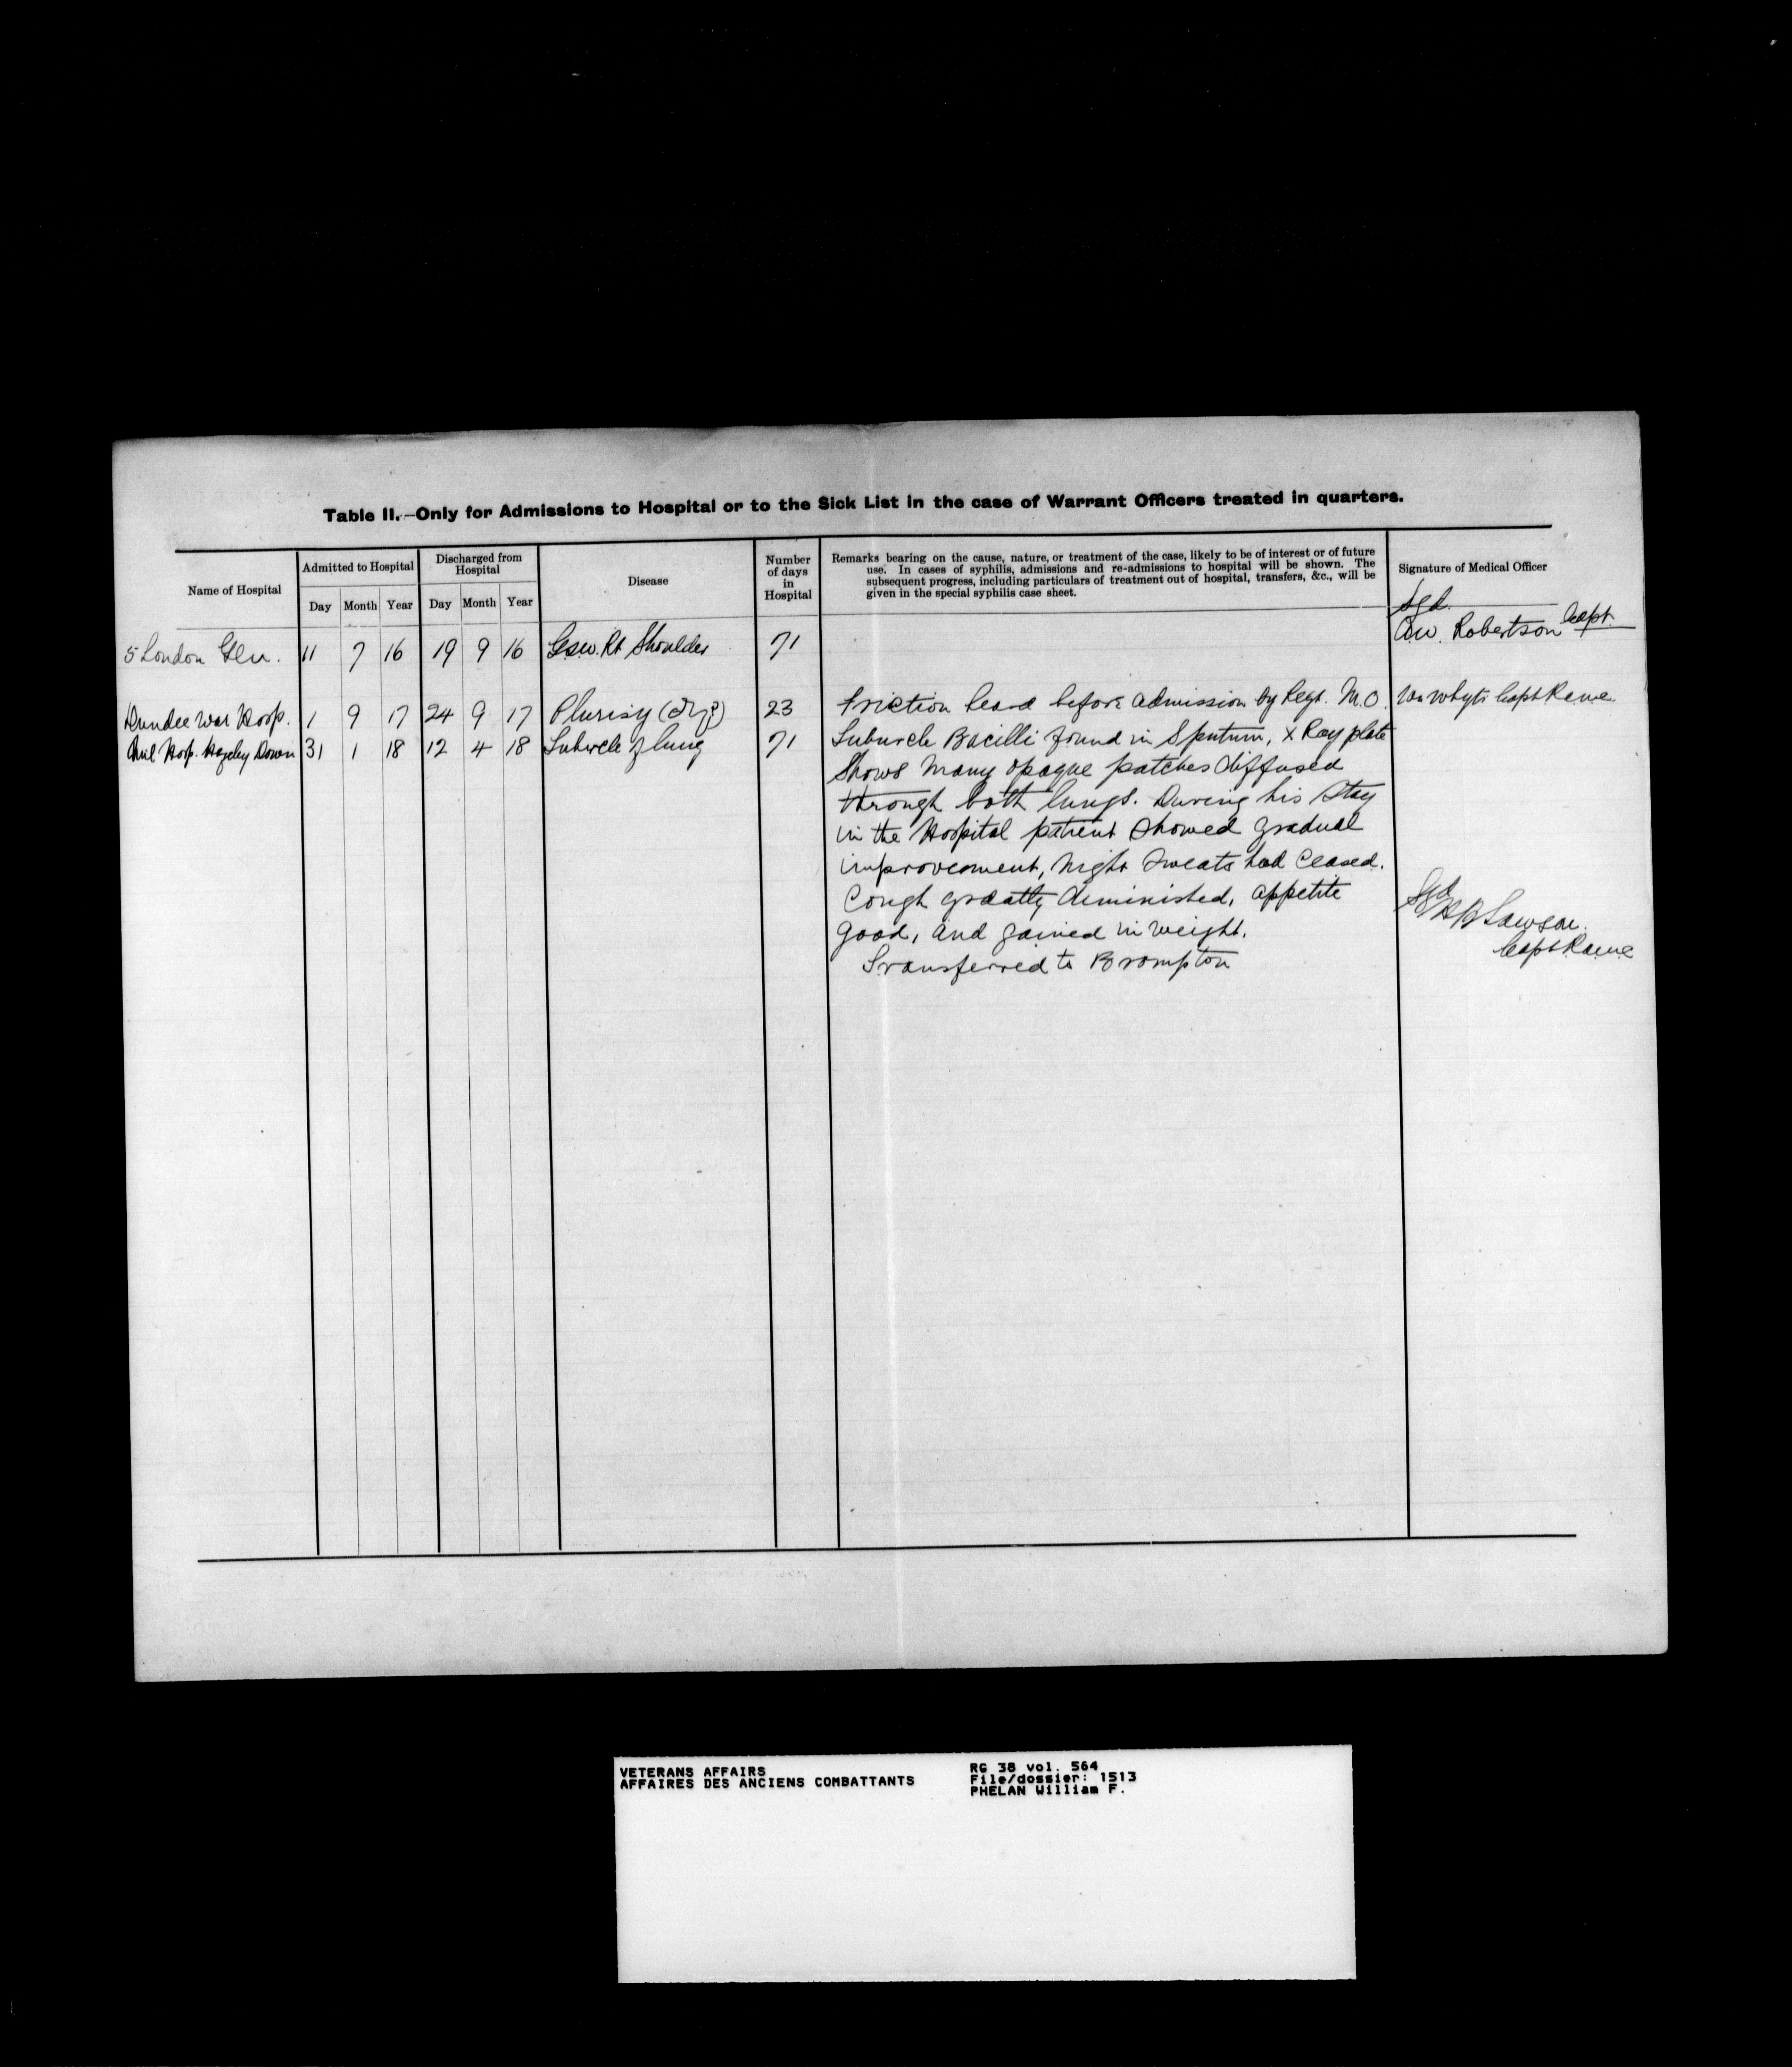 Table II.—Only for Admissions to Hospital or to the Sick List in the case of Warrant Officers treated in quarters.
Name of Hospital
Admitted to Hospital
Discharged from Hospital
Disease
Number of days in Hospital
Remarks bearing on the cause, nature, or treatment of the case, likely to be of interest or of future
use. In cases of syphilis, admissions and re-admissions to hospital will be shown. The
subsequent progress, including particulars of treatment out of hospital, transfers, &c., will be
given in the special syphilis case sheet.
Signature of Medical Officer
Day Month Year Day Month Year
Sgd.
A.W. Robertson Capt.
5 London Gen. 11 7 16 19 9 16 G.S.W. Rt Shoulder 71
Dundee War Hosp. 1 9 17 24 9 17 Plurisy (dry) 23 Friction heard before admission by Regt. M.O. Wm Whyte Capt R.a.m.c.
Mil Hosp. Hazeley Down 31 1 18 12 4 18 Tubercle of lung 71 Tubercle Bacilli found in Sputum, X Ray plate
Shows Many opaque patches diffused
through both lungs. During his stay
in the Hospital patient showed gradual
improvement, Night Sweats had Ceased.
Cough greatly diminished, appetite
good, and gained in weight.
Transferred to Brompton
Sgd
Lawson.
Capt R.a.m.c
VETERANS AFFAIRS
AFFAIRES DES ANCIENS COMBATTANTS
RG 38 vol. 564
File/dossier: 1513
PHELAN William F.